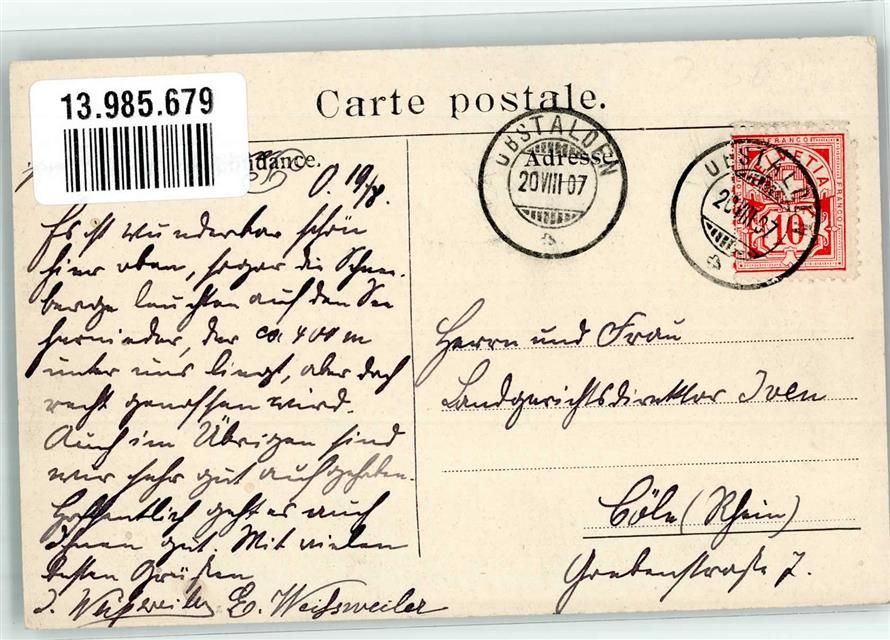 13.985.679
Carte postale.
ndance.
Adresse
OBSTALDEN
20 VIII 07
OBSTALDEN
20 VIII 07
FRANCO
HELVETIA
FRANCO
10
O. 19/8.
Es ist wunderbar schön
hier oben, sogar die Schnee-
berge leuchten auf den See
hernieder, der ca 400 m
unter uns liegt, aber doch
recht genossen wird.
Auch im Übrigen sind
wir sehr gut aufgehoben.
Hoffentlich geht es auch
Ihnen gut. Mit vielen
besten Grüßen
J. Weisweiler E. Weisweiler
Herrn und Frau
Landgerichtsdirektor Iven
Cöln (Rhein)
Grebenstraße 7.